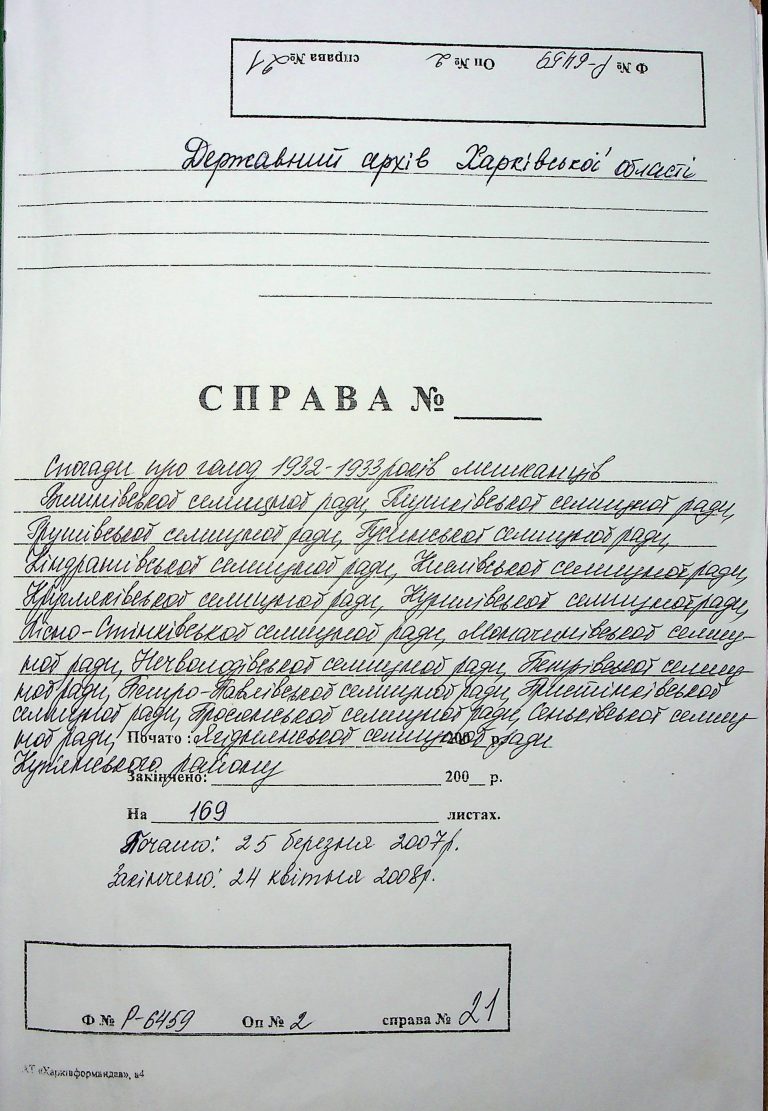 Ф № Р-6459 Оп № 2 справа № 21
Державний архів Харківської області
СПРАВА № ____
Спогади про голод 1932-1933 років мешканців
селищної ради, селищної ради,
Грушівської селищної ради, Гусинської селищної ради,
Кіндрашівської селищної ради, селищної ради,
Кругляківської селищної ради, Курилівської селищної ради,
Лісно-Стінківської селищної ради, Моначинівської селищ-
ної ради, Нечволодівської селищної ради, Петрівської селищ-
ної ради, Петро-Павлівської селищної ради, Пристінської
селищної ради, Просянської селищної ради, Сеньківської селищ-
ної ради, Почато: селищної ради 200 р.
Куп'янського району
Закінчено: 200__ р.
На 169 листах.
Почато: 25 березня 2007р.
Закінчено: 24 квітня 2008р.
Ф № Р-6459 Оп № 2 справа № 21
АТ «Харківформвидав», а4